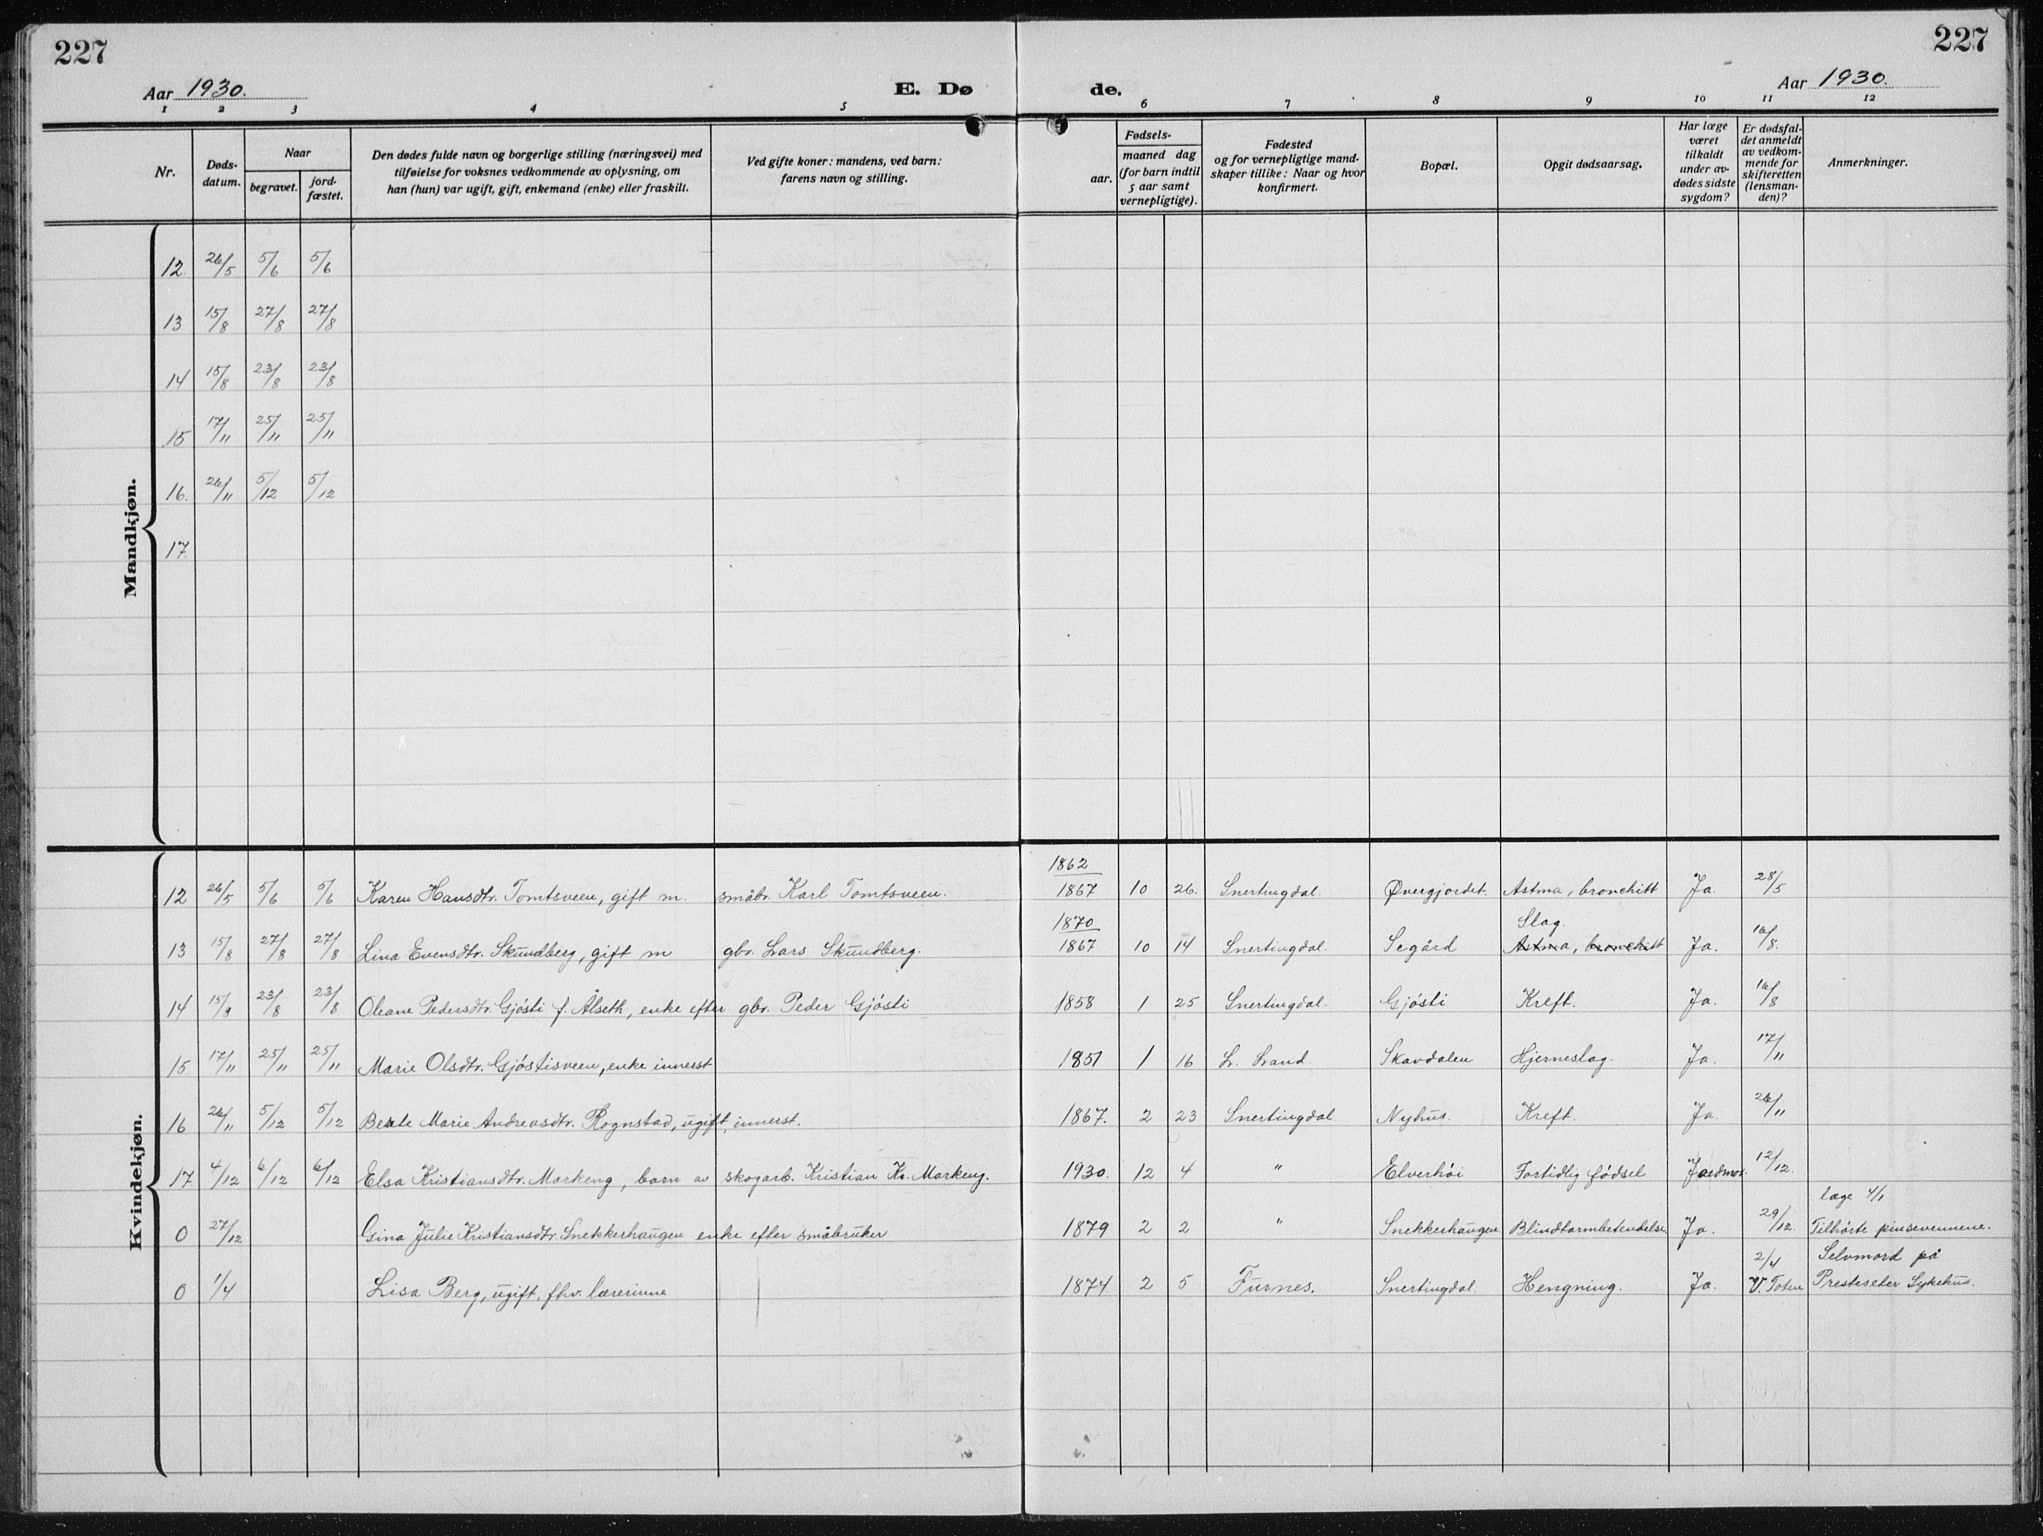 227
227
Aar 1930.
E. Dø
de.
Aar 1930.
1 2 3 4 5 6 7 8 9 10 11 12
Nr.
Døds-
datum.
Naar
begravet.
jord-
fæstet.
Den dødes fulde navn og borgerlige stilling (næringsvei) med
tilføielse for voksnes vedkommende av oplysning, om
han (hun) var ugift, gift, enkemand (enke) eller fraskilt.
Ved gifte koner: mandens, ved barn:
farens navn og stilling.
Fødsels-
aar.
maaned dag
(for barn indtil
5 aar samt
vernepligtige).
Fødested
og for vernepligtige mand-
skaper tillike: Naar og hvor
konfirmert.
Bopæl.
Opgit dødsaarsag.
Har læge
været
tilkaldt
under av-
dødes sidste
sygdom?
Er dødsfal-
det anmeldt
av vedkom-
mende for
skifteretten
(lensman-
den)?
Anmerkninger.
Mandkjøn.
12 26/5 5/6 5/6
13 15/8 27/8 27/8
14 15/8 23/8 23/8
15 17/11 25/11 25/11
16. 26/11 5/12 5/12
17.
Kvindekjøn.
1862
12 26/5 5/6 5/6 Karen Hansdtr. Tomtsveen, gift m. småbr. Karl Tomtsveen. 1867 10 26. Snertingdal. Øvergjordet. Astma, bronchitt Ja. 28/5
1870 Slag
13 15/8 27/8 27/8 Lina Evensdtr. Skundberg, gift m gbr. Lars Skundberg. 1867 10 14 Snertingdal. Segård Astma, bronchitt Ja. 16/8.
14 15/8 23/8 23/8 Oleane Pedersdtr. Gjøsti f. Ålseth, enke efter gbr. Peder Gjøsti 1858 1 25 Snertingdal. Gjøsti Kreft. Ja. 16/8
15 17/11 25/11 25/11 Marie Olsdtr. Gjøstisveen, enke innerst 1851 1 16 S. Land. Skavdalen Hjerneslag. Ja. 17/11
16 26/11 5/12 5/12 Marie Andreasdtr. Rognstad, ugift, innerst. 1867. 2 23 Snertingdal. Nyhus. Kreft. Ja. 26/11
17. 4/12 6/12 6/12 Elsa Kristiansdtr. Markeng, barn av skogarb. Kristian Kr. Markeng. 1930. 12 4 " Elverhøi Fortidlig fødsel Jordmor. 12/12.
læge 4/1
0 27/12 Gina Julie Kristiansdtr. Snekkerhaugen enke efter småbruker 1879 2 2 " Snekkerhaugen Blindtarmbetendelse Ja. 29/12. Tilhørte pinsevennene.
2/4 Selvmord på
0 1/4 Lisa Berg, ugift, fhv. lærerinne 1874 2 5 Furnes. Snertingdal. Hengning. Ja. V. Toten Presteseter Sykehus.